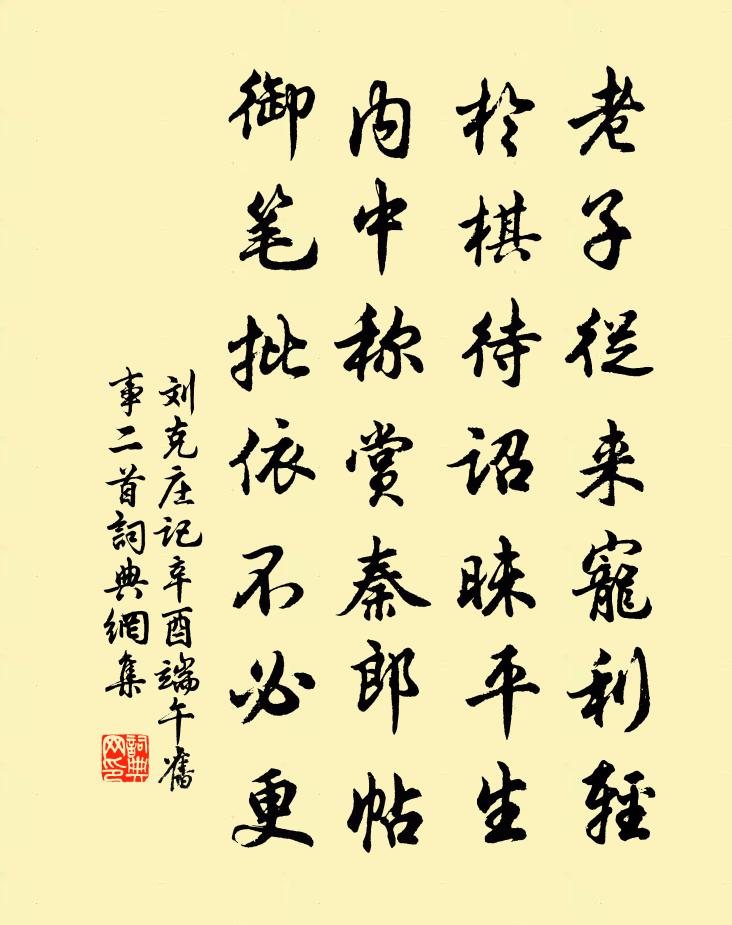 老子從来寵利輕
於棋待诏昧平生
内中称赏秦郎帖
御笔批依不必更
刘克庄记辛酉端午舊
事二首詞典網集
詞典網印